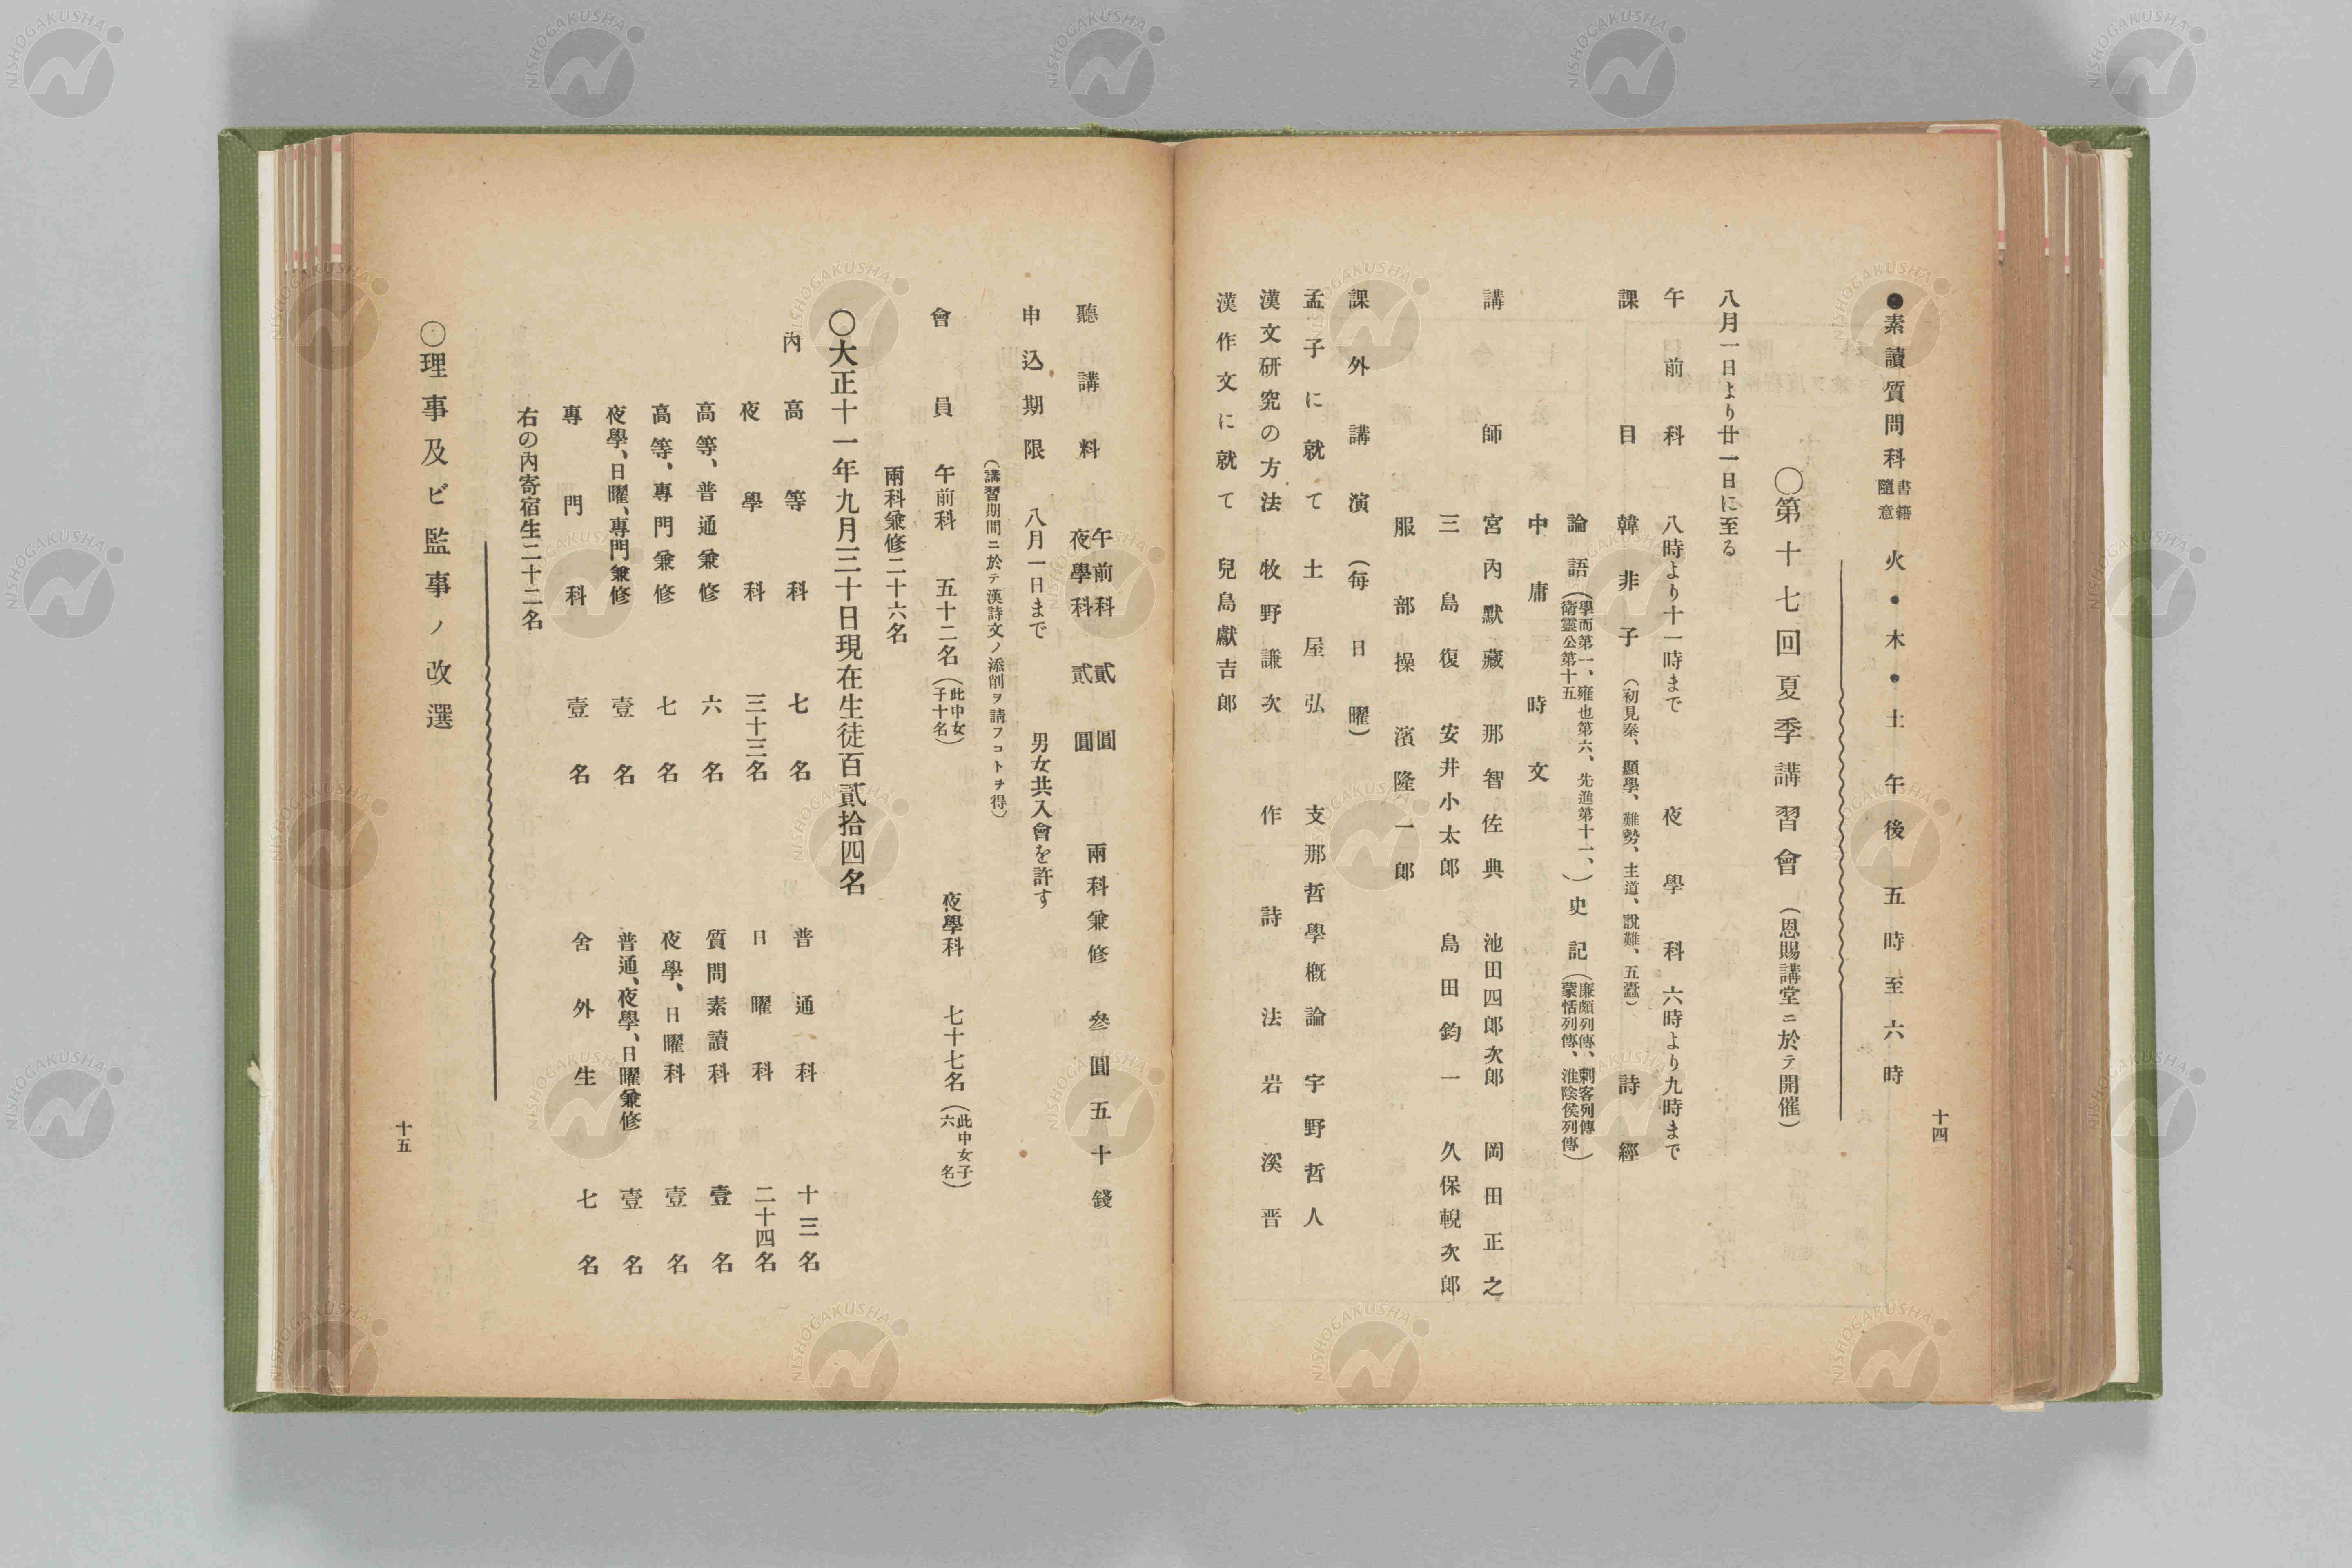 十四
●素讀質問科 書籍隨意 火・木・土 午後 五時至六時
○第十七回夏季講習會（恩賜講堂ニ於テ開催）
八月一日より廿一日に至る
午前科 八時より十一時まで 夜學科 六時より九時まで
課目 韓非子（初見秦、顯學、難勢、主道、說難、五蠹） 詩經
論語（學而第一、雍也第六、先進第十一、衛靈公第十五） 史記（廉頗列傳、刺客列傳、蒙恬列傳、淮陰侯列傳）
中庸 時文
講師 宮內默藏 那智佐典 池田四郎次郎 岡田正之
三島復 安井小太郎 島田鈞一 久保輗次郎
服部操 濱隆一郎
課外講演（每日曜）
孟子に就て 土屋弘 支那哲學概論 宇野哲人
漢文研究の方法 牧野謙次 作詩法 岩溪晋
漢作文に就て 兒島獻吉郎
聽講料 午前科 貳圓 夜學科 貳圓 兩科兼修 叄圓五十錢
申込期限 八月一日まで 男女共入會を許す
（講習期間ニ於テ漢詩文ノ添削ヲ請フコトヲ得）
會員 午前科 五十二名（此中女子十名） 夜學科 七十七名（此中女子六名）
兩科兼修二十六名
○大正十一年九月三十日現在生徒百貳拾四名
內 高等科 七名 普通科 十三名
夜學科 三十三名 日曜科 二十四名
高等、普通兼修 六名 質問素讀科 壹名
高等、專門兼修 七名 夜學、日曜科 壹名
夜學、日曜、專門兼修 壹名 普通、夜學、日曜兼修 壹名
專門科 壹名 舍外生 七名
右の內寄宿生二十二名
○理事及ビ監事ノ改選
十五
NISHOGAKUSHA